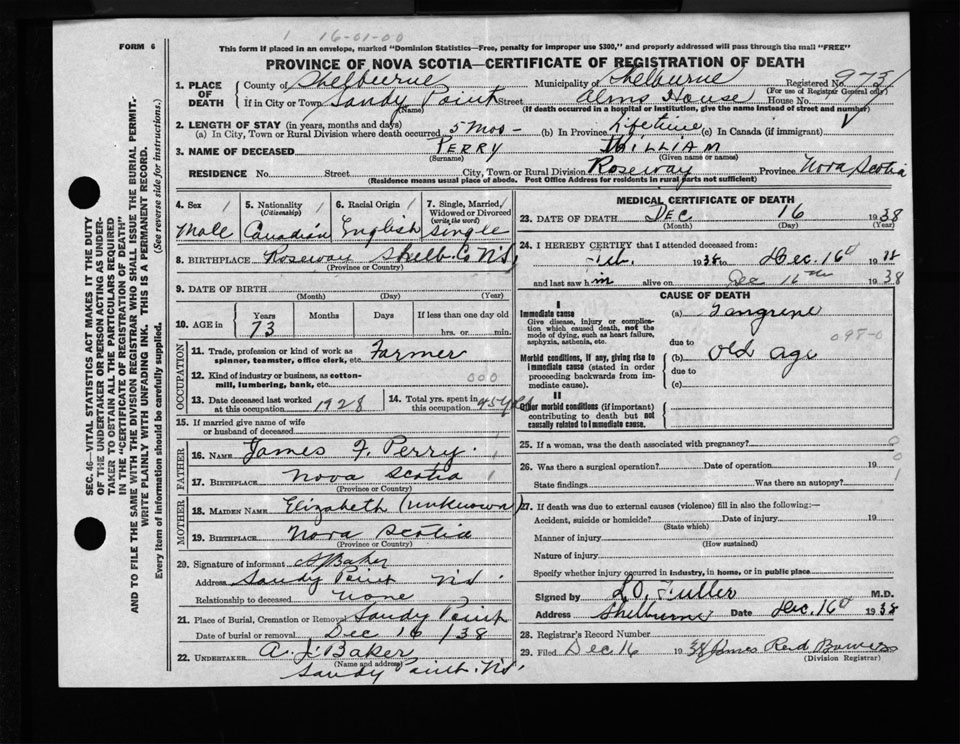 1 16-01-00
FORM 6
This form if placed in an envelope, marked "Dominion Statistics—Free, penalty for improper use $300," and properly addressed will pass through the mail "FREE"
PROVINCE OF NOVA SCOTIA—CERTIFICATE OF REGISTRATION OF DEATH
SEC. 46—VITAL STATISTICS ACT MAKES IT THE DUTY
OF THE UNDERTAKER OR PERSON ACTING AS UNDER-
TAKER TO OBTAIN ALL THE PARTICULARS REQUIRED
IN THE "CERTIFICATE OF REGISTRATION OF DEATH"
AND TO FILE THE SAME WITH THE DIVISION REGISTRAR WHO SHALL ISSUE THE BURIAL PERMIT.
WRITE PLAINLY WITH UNFADING INK. THIS IS A PERMANENT RECORD.
Every item of information should be carefully supplied. (See reverse side for instructions.)
1. PLACE OF DEATH County of Shelburne Municipality of Shelburne Registered No. 9731
(For use of Registrar General only)
If in City or Town Sandy Point Street Alms House House No.
(Name) (If death occurred in a hospital or institution, give the name instead of street and number)
2. LENGTH OF STAY (in years, months and days)
(a) In City, Town or Rural Division where death occurred 5 Mos - (b) In Province lifetime (c) In Canada (if immigrant)
3. NAME OF DECEASED PERRY WILLIAM
(Surname) (Given name or names)
RESIDENCE No. Street City, Town or Rural Division Roseway Province Nova Scotia
(Residence means usual place of abode. Post Office Address for residents in rural parts not sufficient)
4. Sex 1 Male
5. Nationality (Citizenship) 1 Canadian
6. Racial Origin 1 English
7. Single, Married, Widowed or Divorced (write the word) 1 Single
8. BIRTHPLACE Roseway Shelb. Co N.S.
(Province or Country)
9. DATE OF BIRTH
(Month) (Day) (Year)
10. AGE in Years Months Days If less than one day old
73 hrs. or min.
OCCUPATION
11. Trade, profession or kind of work as spinner, teamster, office clerk, etc. Farmer
12. Kind of industry or business, as cotton-mill, lumbering, bank, etc. 000
13. Date deceased last worked at this occupation 1928
14. Total yrs. spent in this occupation 45 yrs
15. If married give name of wife or husband of deceased
FATHER
16. NAME James F. Perry
17. BIRTHPLACE Nova Scotia 1
(Province or Country)
MOTHER
18. MAIDEN NAME Elizabeth (unknown)
19. BIRTHPLACE Nova Scotia
(Province or Country)
20. Signature of informant AJ Baker
Address Sandy Point N.S.
Relationship to deceased none
21. Place of Burial, Cremation or Removal Sandy Point
Date of burial or removal Dec 16/38
22. UNDERTAKER A. J. Baker
(Name and address)
Sandy Point. N.S.
MEDICAL CERTIFICATE OF DEATH
23. DATE OF DEATH Dec 16 1938
(Month) (Day) (Year)
24. I HEREBY CERTIFY that I attended deceased from:
1938 to Dec. 16th 1938
and last saw him alive on Dec 16th 1938
CAUSE OF DEATH
I
Immediate cause
Give disease, injury or complication which caused death, not the mode of dying, such as heart failure, asphyxia, asthenia, etc.
(a) Gangrene
098-0
due to
Morbid conditions, if any, giving rise to immediate cause (stated in order proceeding backwards from immediate cause).
(b) Old Age
due to
(c)
II
Other morbid conditions (if important) contributing to death but not causally related to immediate cause.
25. If a woman, was the death associated with pregnancy? 0
26. Was there a surgical operation? Date of operation 19 0
State findings Was there an autopsy? 1
27. If death was due to external causes (violence) fill in also the following:—
Accident, suicide or homicide? Date of injury 19
(State which)
Manner of injury
(How sustained)
Nature of injury
Specify whether injury occurred in industry, in home, or in public place
Signed by L.O. Fuller M.D.
Address Shelburne Date Dec. 16th 1938
28. Registrar's Record Number
29. Filed Dec 16 1938 James Reid Bower
(Division Registrar)